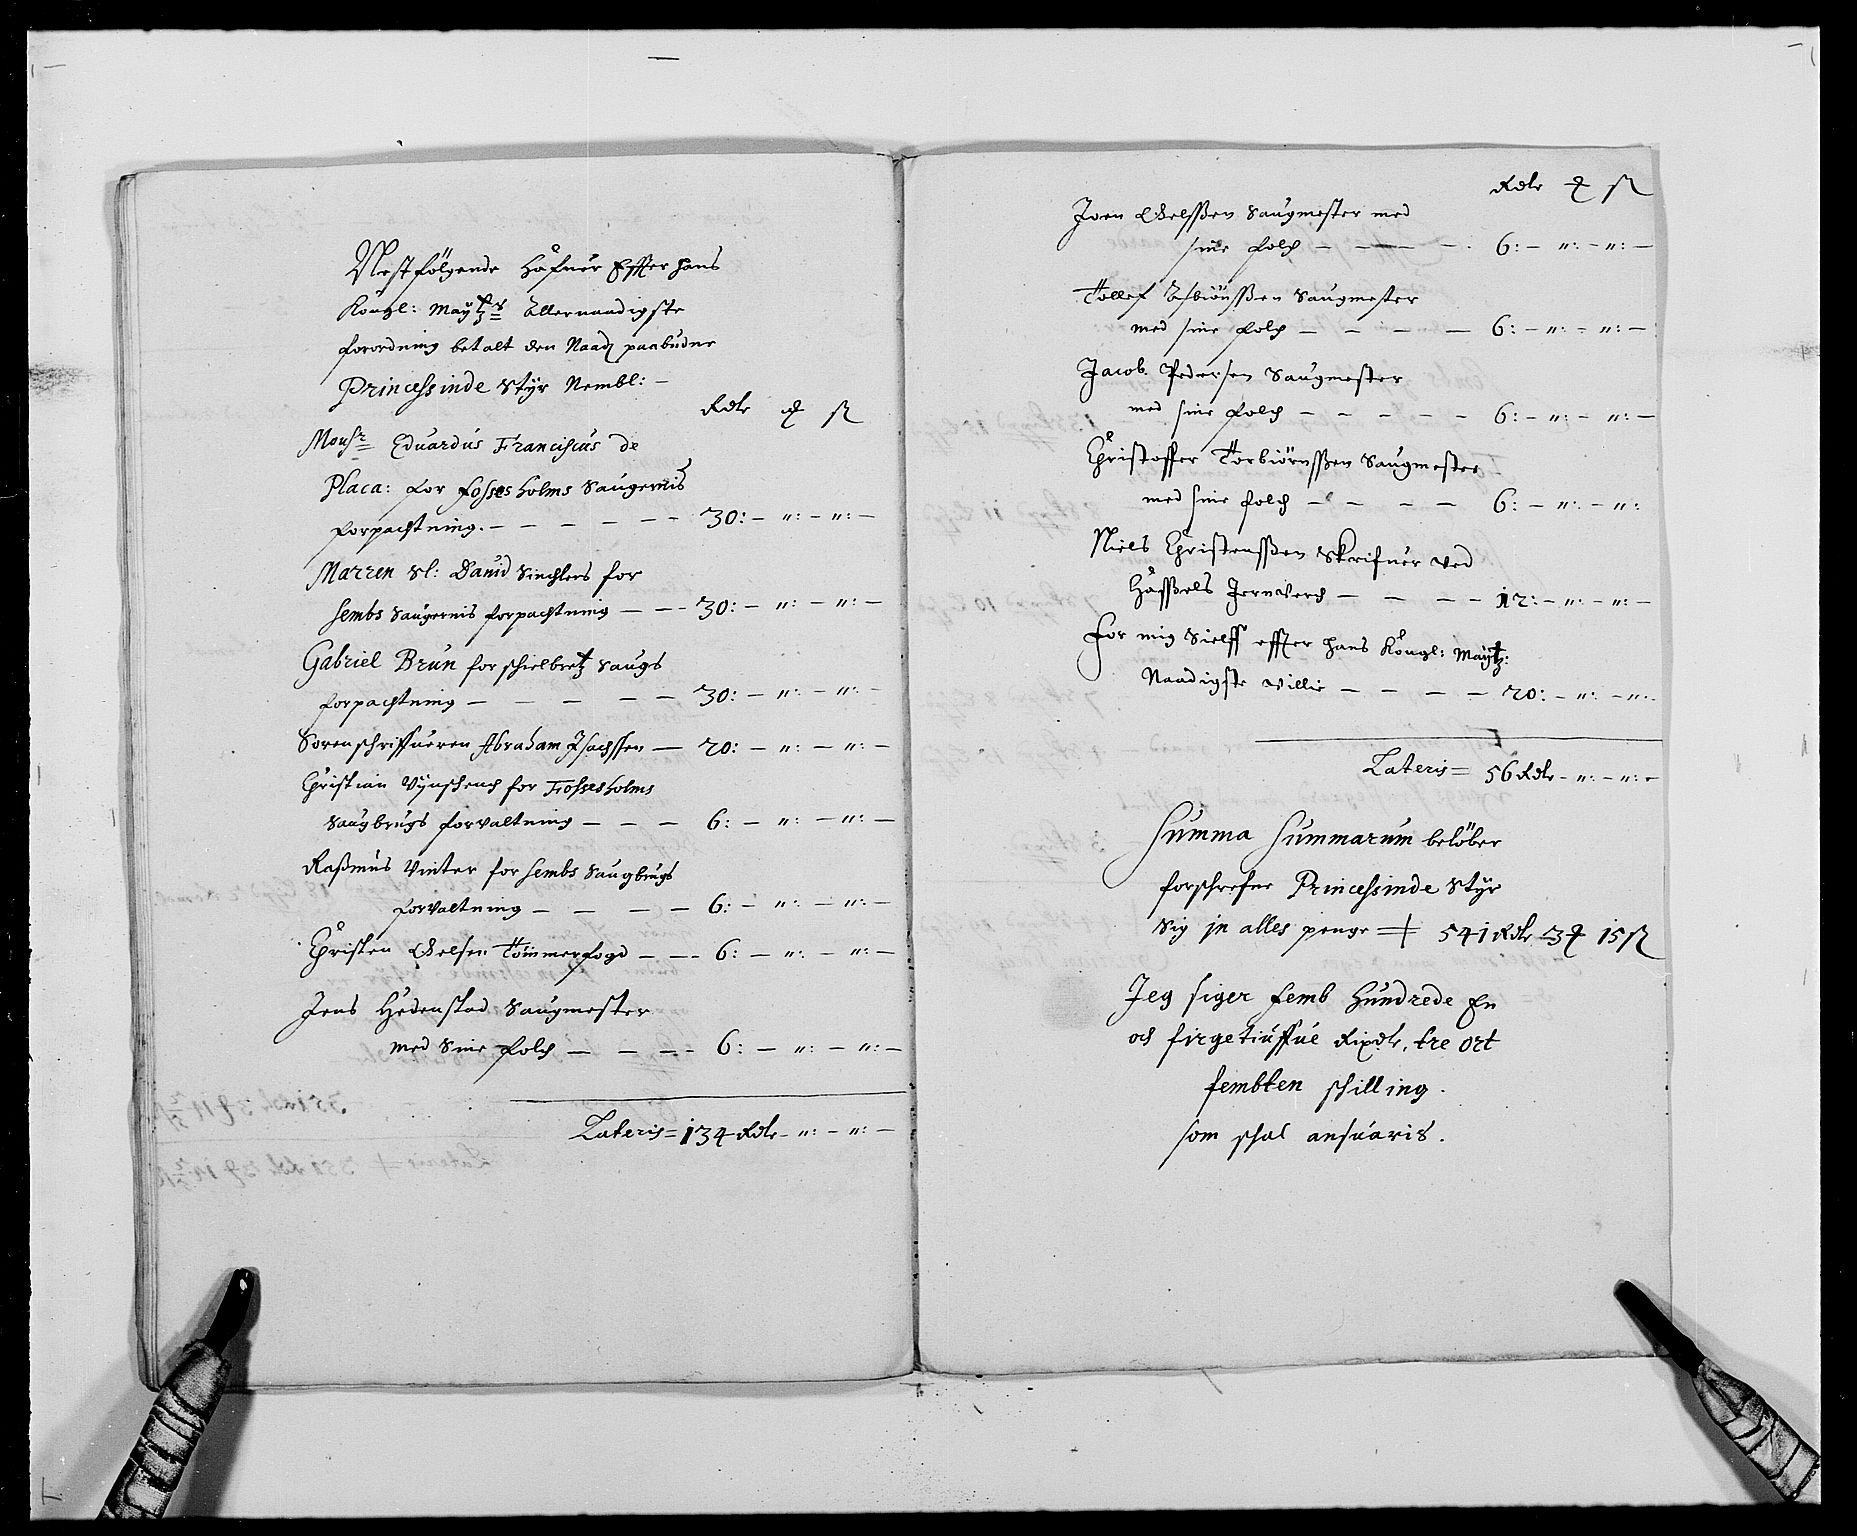 Nestfölgende Hafuer Effter hans
Kongl: Maytz Allernaadigste
forordning betalt den Naad paabudne
Princessinde Styr Nembl: –
Rdr
Monsr Eduardus Franciscus de
Placa: for fossesholms Saugernis
forpachtning. – – – – – – 30: – ": – ": –
Marren Sl: Dauid Sinchlers for
Sembs Saugernis forpachtning – – – 30: – ": – ": –
Gabriel Brun for schielbretz Saugs
forpachtning – – – – – 30: – ": – ": –
Sorenschriffueren Abraham Isachssen – 20: – ": – ": –
Christian for Fossesholms
Saugbrugs forvaltning – – – 6: – ": – ": –
Rasmus Vinter for Sembs Saugbrugs
forvaltning – – – – 6: – ": – ": –
Christen Oelsen Tömmerfogd – – – 6: – ": – ": –
Jens Hedenstad Saugmester
med Sine folch – – – – 6: – ": – ": –
Lateris = 134 Rdr – ": – ": –
Rdr
Joen Oelssen Saugmester med
sine folch – – – – 6: – ": – ": –
Tollef Asbiönssen Saugmester
med sine folch – – – – 6: – ": – ": –
Jacob Pedersen Saugmester
med sine folch – – – – – 6: – ": – ": –
Christoffer Torbiörnssen Saugmester
med sine folch – – – – 6: – ": – ":
Niels Christenssen Skrifuer ved
Hassels Jernverch – – – – 12: – ": – ": –
For mig Sielff effter hans Kongl: Maytz:
Naadigste villie – – – – 20: – ": – ":
Lateris = 56 Rdr – ": – ": –
Summa Summarum belöber
forschrefne Princessinde Styr
Sig jn alles penge 541 Rdr 3 15
Jeg siger femb Hundrede En
och firgetiuffue Rixdr, tre ort
fembten schilling.
som schal ansuaris.